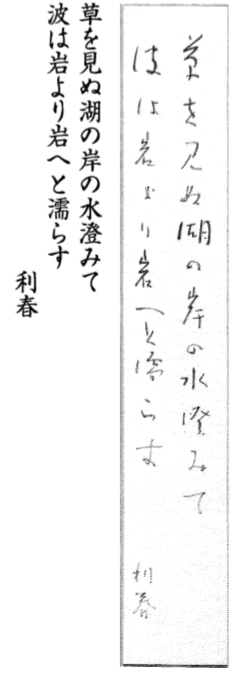 草を見ぬ湖の岸の水澄みて
波は岩より岩へと濡らす
利春
草を見ぬ湖の岸の水澄みて
波は岩より岩へと濡らす
利春